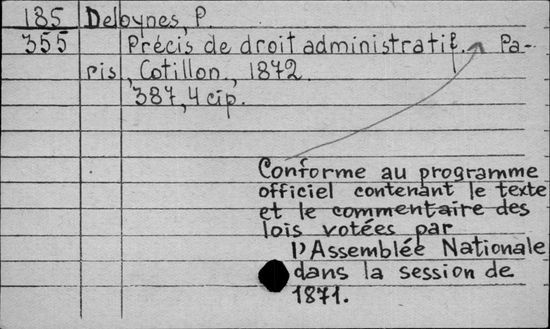 185 Delbynes, P.
355 Précis de droit administratif. Pa-
ris, Cotillon, 1872.
387, 4 cip.
Conforme au programme
officiel contenant le texte
et le commentaire des
lois votées par
l'Assemblée Nationale
dans la session de
1871.